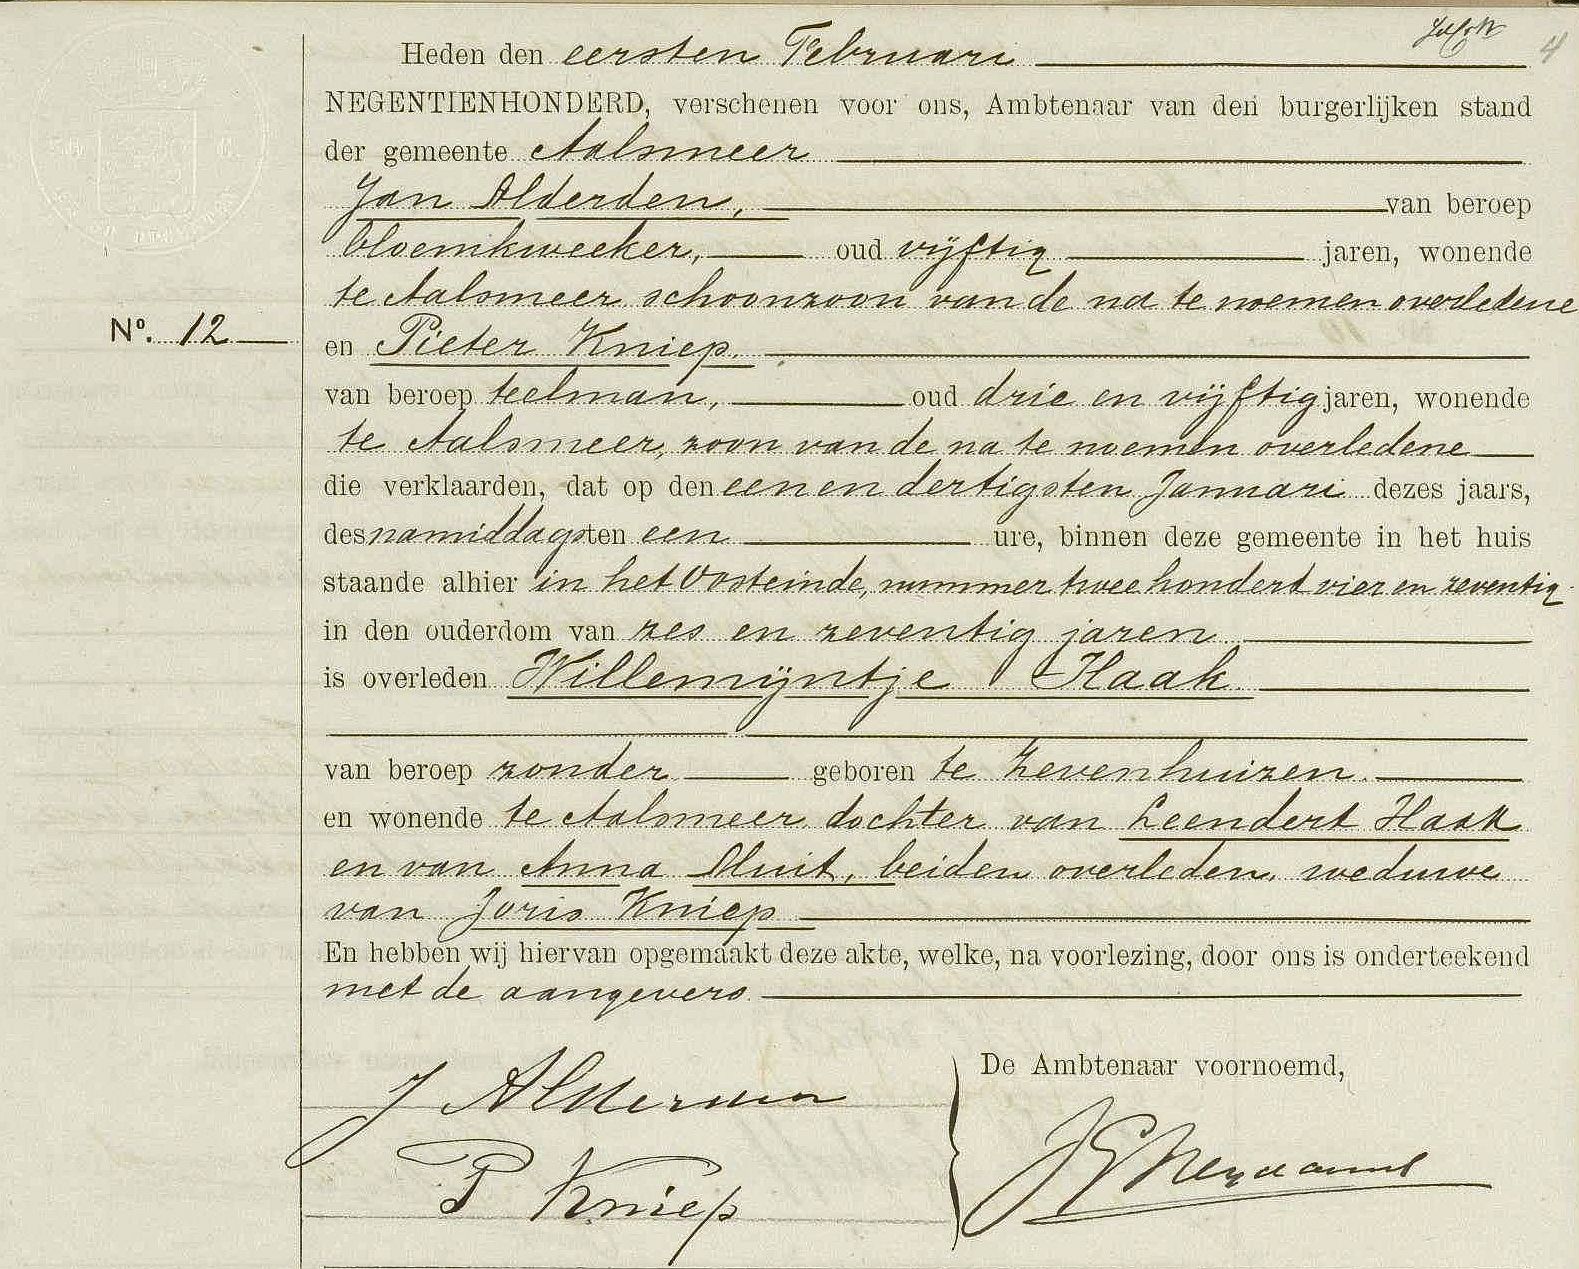 4
Heden den eersten Februari
NEGENTIENHONDERD, verschenen voor ons, Ambtenaar van den burgerlijken stand
der gemeente Aalsmeer
Jan Alderden, van beroep
bloemkweeker, oud vijftig jaren, wonende
te Aalsmeer schoonzoon van de na te noemen overledene
No. 12
en Pieter Kniep.
van beroep teelman, oud drie en vijftig jaren, wonende
te Aalsmeer, zoon van de na te noemen overledene
die verklaarden, dat op den een en dertigsten Januari dezes jaars,
des namiddags ten een ure, binnen deze gemeente in het huis
staande alhier in het Oosteinde, nummer twee hondert vier en zeventig
in den ouderdom van zes en zeventig jaren
is overleden Willemijntje Haak
van beroep zonder geboren te Zevenhuizen.
en wonende te Aalsmeer dochter van Leendert Haak
en van Anna Muit, beiden overleden, weduwe
van Joris Kniep
En hebben wij hiervan opgemaakt deze akte, welke, na voorlezing, door ons is onderteekend
met de aangevers.
De Ambtenaar voornoemd,
J Alderden
P Kniep